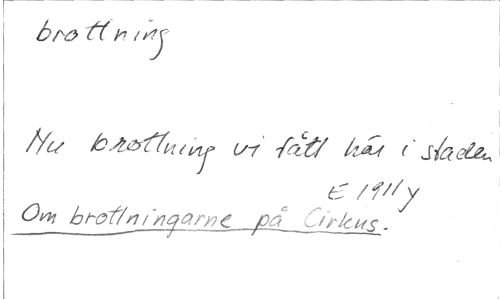 brottning
Nu brottning vi fått här i staden
E 1911 y
Om brottningarne på Cirkus.